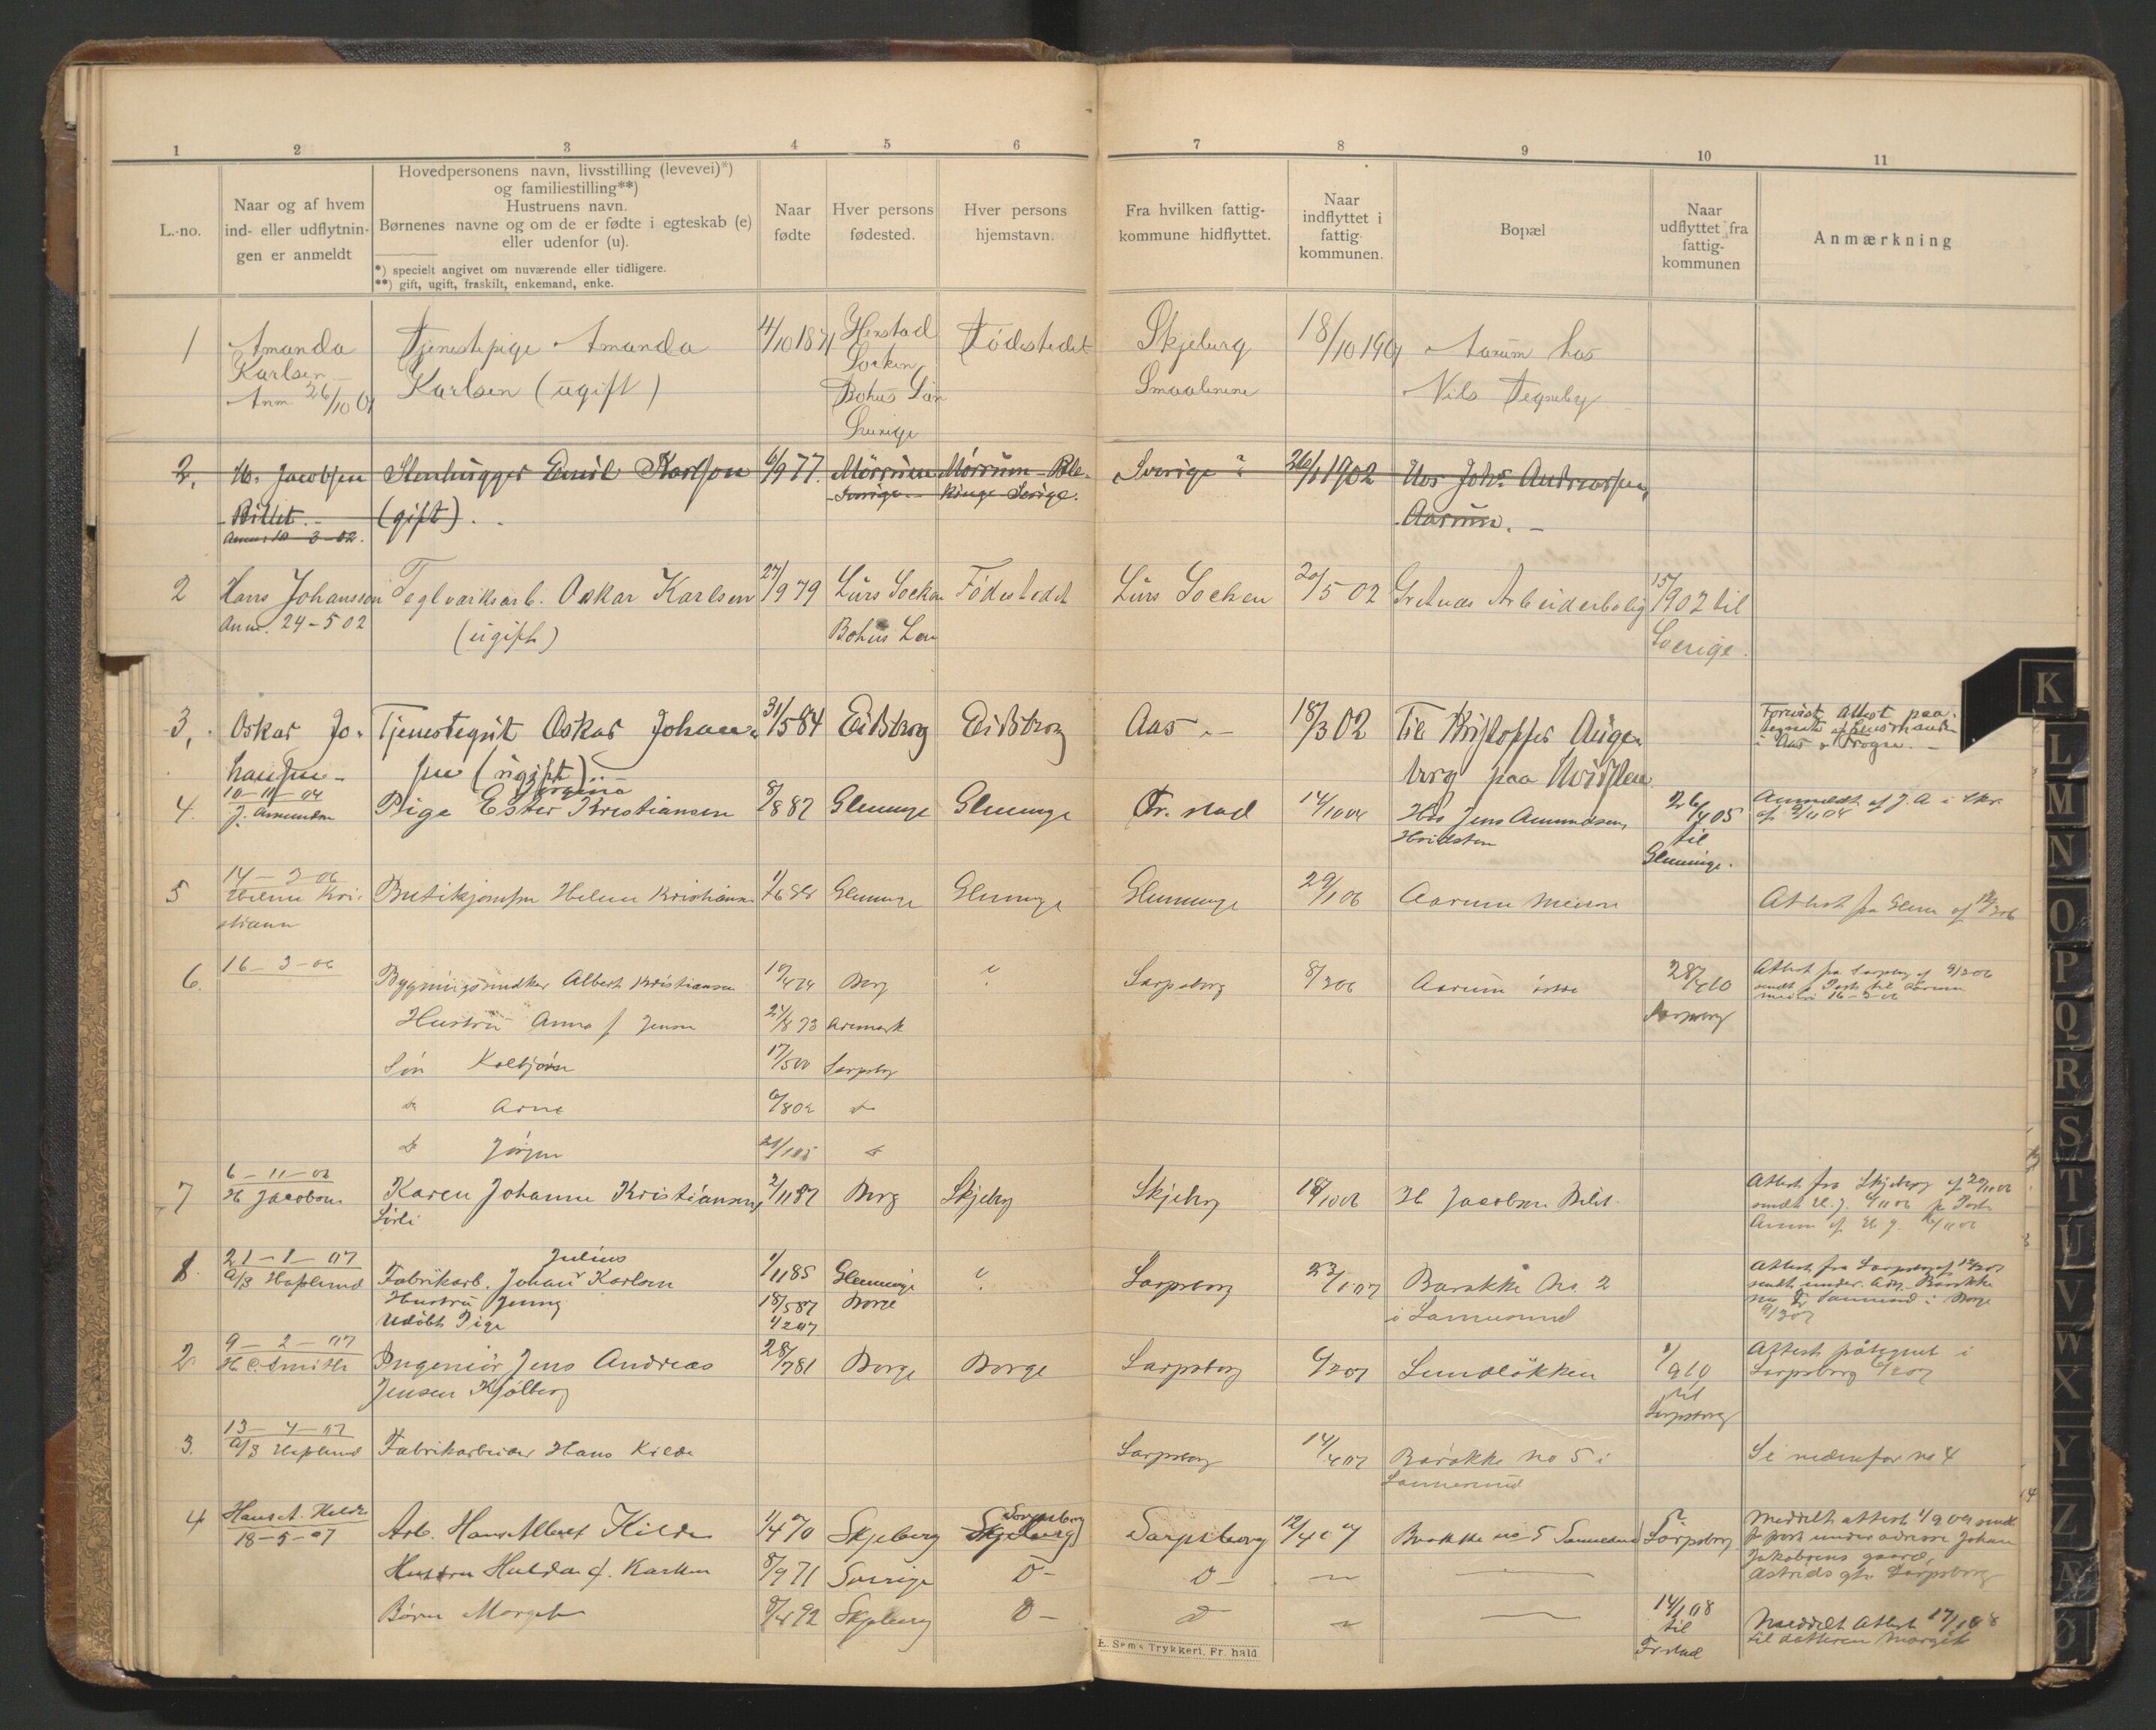 1 2 3 4 5 6 7 8 9 10 11
L.-no.
Naar og af hvem
ind- eller udflytnin-
gen er anmeldt
Hovedpersonens navn, livsstilling (levevei)*)
og familiestilling**)
Hustruens navn.
Børnenes navne og om de er fødte i egteskab (e)
eller udenfor (u).
*) specielt angivet om nuværende eller tidligere.
**) gift, ugift, fraskilt, enkemand, enke.
Naar
fødte
Hver persons
fødested.
Hver persons
hjemstavn.
Fra hvilken fattig-
kommune hidflyttet.
Naar
indflyttet i
fattig-
kommunen.
Bopæl
Naar
udflyttet fra
fattig-
kommunen
Anmærkning
1 Amanda Tjenestepige Amanda 4/10 1871 Fødestedet Skjeberg 18/10 1901 Aarum hos
Karlsen Karlsen (ugift) Socken Smaalenene Nils Tegneby
Anm 26/10 01 Bohus Län
Sverige
2. H. Jacobsen Stenhugger Emil Karlson 6/9 77. Mörrum Mörrum Ble- Sverige 26/1 1902 Hos Johs. Andreassen,
Billet. (gift). Sverige kinge Sverige. Aarum.
Anm: 10-3-02.
2 Hans Johansson Teglverksarb. Oskar Karlsen 27/9 79 Lurs Socken Fødestedet Lurs Socken 20/5 02 Gretnes Arbeiderbolig 15/9 02 til
Anm. 24-5 02 (ugift) Bohus Len Sverige.
3, Oskar Jo- Tjenestegut Oskar Johan- 31/5 84 Eidsberg Eidsberg Aas 18/3 02 Til Kristoffer Augen- Forevist Attest paa-
hansen sen (ugift) berg paa Hvidsten i Aas & Frogn.
10-11-04 Jørgina
4. J. Amundsen Pige Ester Kristiansen 8/8 87 Glemminge Glemminge Fr.stad 14/10 04 Hos Jens Amundsen, 26/4 05 Anmeldt af J. A i Skr.
Hvidsten til af 9/11 04
Glemminge.
14-3-06
5 Helene Kri- Butikjomfru Helene Kristiansen 1/6 88 Glemminge Glemminge Glemminge 29/1 06 Aarum Meieri Attest fra Glem af
stiansen
6. 16-3-06 Bygningssnedker Albert Kristiansen Berg Sarpsborg 8/3 06 Aarum 28/4 10 Attest fra Sarpsborg af 9/3 06
Sarpsborg sendt p Post til Aarum
16-3-06
Hustru Anna f. Jensen 24/8 73 Aremark
Søn Kolbjørn 17/5 00 Sarpsborg
do Arne 6/8 02 do
do Jørgen do
6-11-06
7 H Jacobsen Karen Johanne Kristiansen, 2/11 87 Berg Skjeberg Skjeberg 18/10 06 H Jacobsen Billet. Attest fra Skjeberg af 20/11 06
Sørli sendt H. J. 6/11 06 p Post
21-1-07 Julius
1. A/S Hafslund Fabrikarb. Johan Karlsen 1/11 85 Glemminge Sarpsborg 23/1 07 Barakke No. 2 Attest fra Sarpsborg af
Hustru Jenny 18/5 87 Borge i Sannesund sendt under Adr. Barakke
Udøbt Pige 4/2 07 Sannesund i Borge
9-2-07
2 H C. Smith Ingeniør Jens Andreas 28/7 81 Borge Borge Sarpsborg 6/2 07 Lundløkken 1/9 10 Attest påtegnet i
Jensen Kjølberg til Sarpsborg 6/2 07
Sarpsborg
13-4-07
3. A/S Hafslund Fabrikarbeider Hans Kilde Sarpsborg 14/4 07 Barakke no 5 i Se nedenfor no 4
Sannesund
4 Hans A. Kilde Arb. Hans Albert Kilde 1/4 70 Skjeberg Skjeberg Sarpsborg Sarpsborg 12/4 07 Barakke no 5 Sannesund Sarpsborg Meddelt attest 1/9 09 sendt
18-5-07 p post under adresse Johan
Jakobsens gaard,
Hustru Hulda f. Karlsen 8/9 71 Sverige D- D- Astrids gt. Sarpsborg
Børn Margit 8/4 92 Skjeberg D- D 14/1 08 Meddelt attest 17/1 08
til til datteren Margit
Frstad
E. Sem's Trykkeri, Fr.hald
K
L
M
N
O
P
Q
R
S
T
U
V
W
X
Y
Z
Æ
Ø